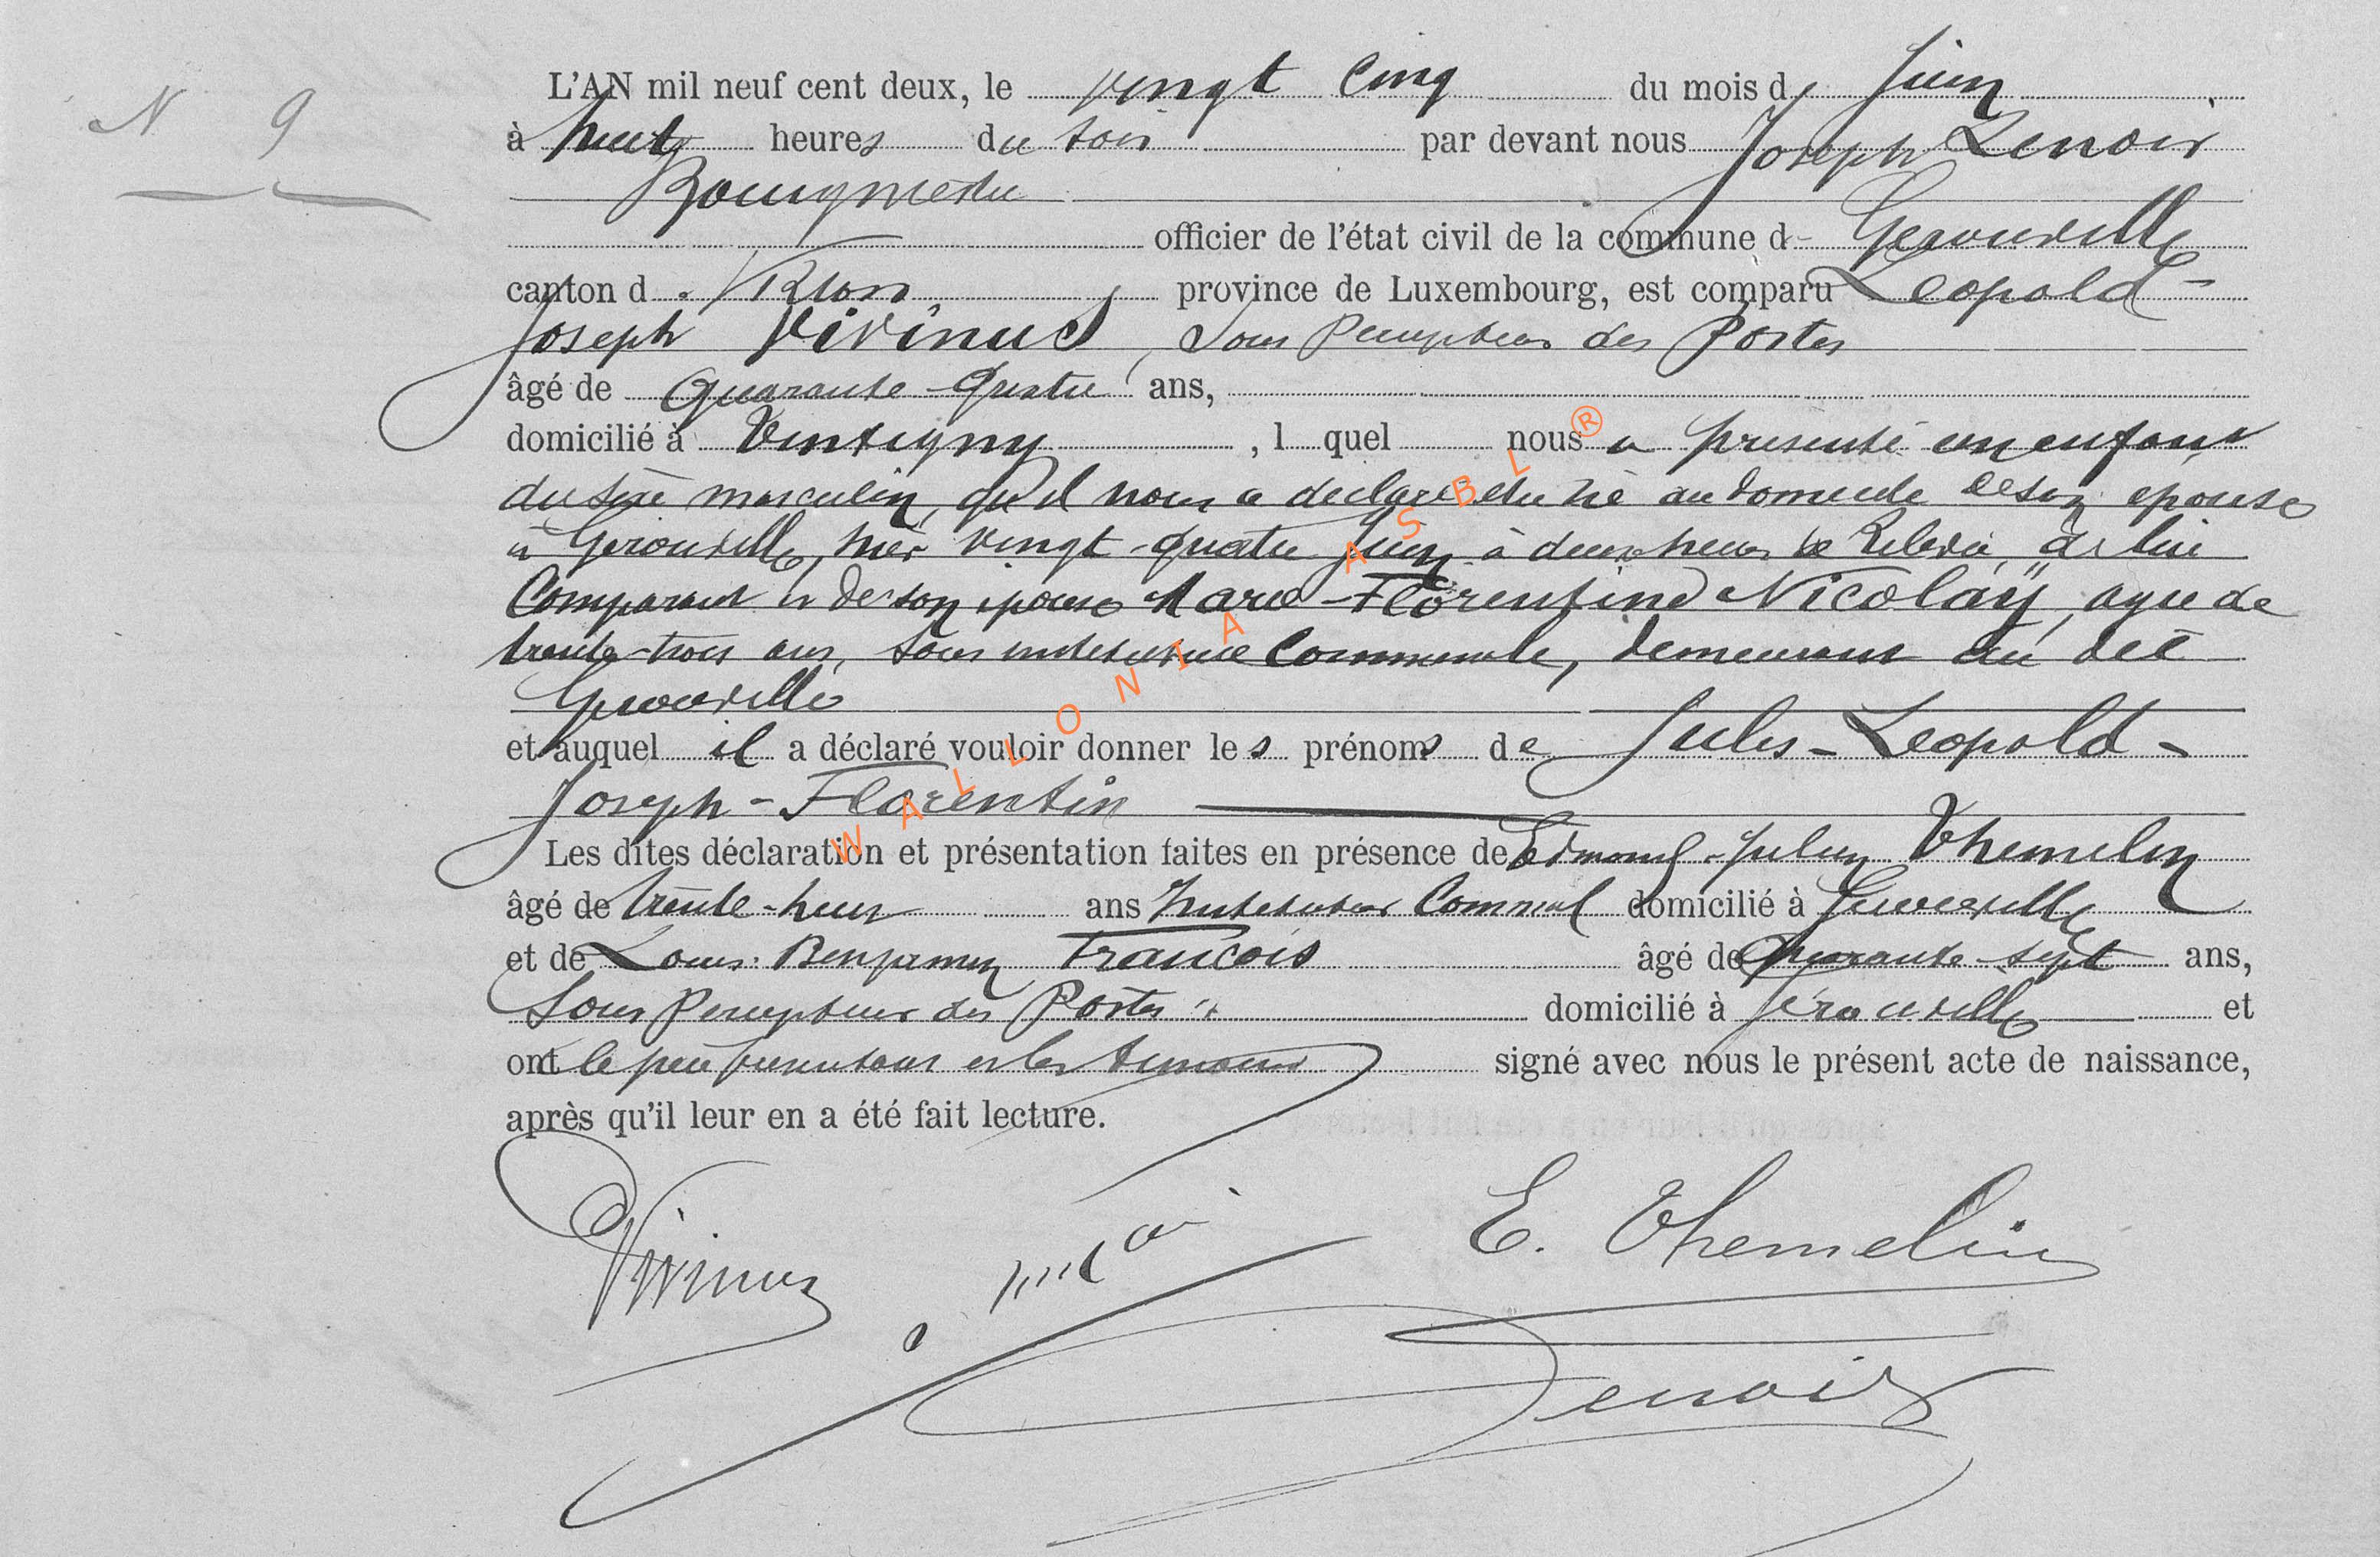 N 9
L'AN mil neuf cent deux, le vingt cinq du mois d Juin
à huit heures du soir par devant nous Joseph Lenoir
Bourgmestre
officier de l'état civil de la commune d Gerouville
canton d Virton province de Luxembourg, est comparu Leopold-
Joseph Vivinus, Sous Percepteur des Postes
âgé de Quarante-Quatre ans,
domicilié à Tintigny, l quel nous a présenté un enfant
du sexe masculin, qu'il nous a declaré etre né au domicile de son epouse
à Gerouville, hier vingt-quatre Juin à deux heures de de lui
Comparant et de son epouse Marie-Florentine Nicolaÿ, agee de
trente-trois ans, Sous institutrice Communale, demeurant au dit
Gerouville
et auquel il a déclaré vouloir donner les prénoms de Jules-Leopold-
Joseph-Florentin
Les dites déclaration et présentation faites en présence de Edmond-Julien Themelin
âgé de trente-huit ans Instituteur Communal domicilié à Gerouville
et de Louis-Benjamin Francois âgé de Quarante-sept ans,
Sous Percepteur des Postes domicilié à Gérouville et
ont le père présentant et les temoins signé avec nous le présent acte de naissance,
après qu'il leur en a été fait lecture.
Vivinus E. Themelin
Lenoir
WALLONIA ASBL ®